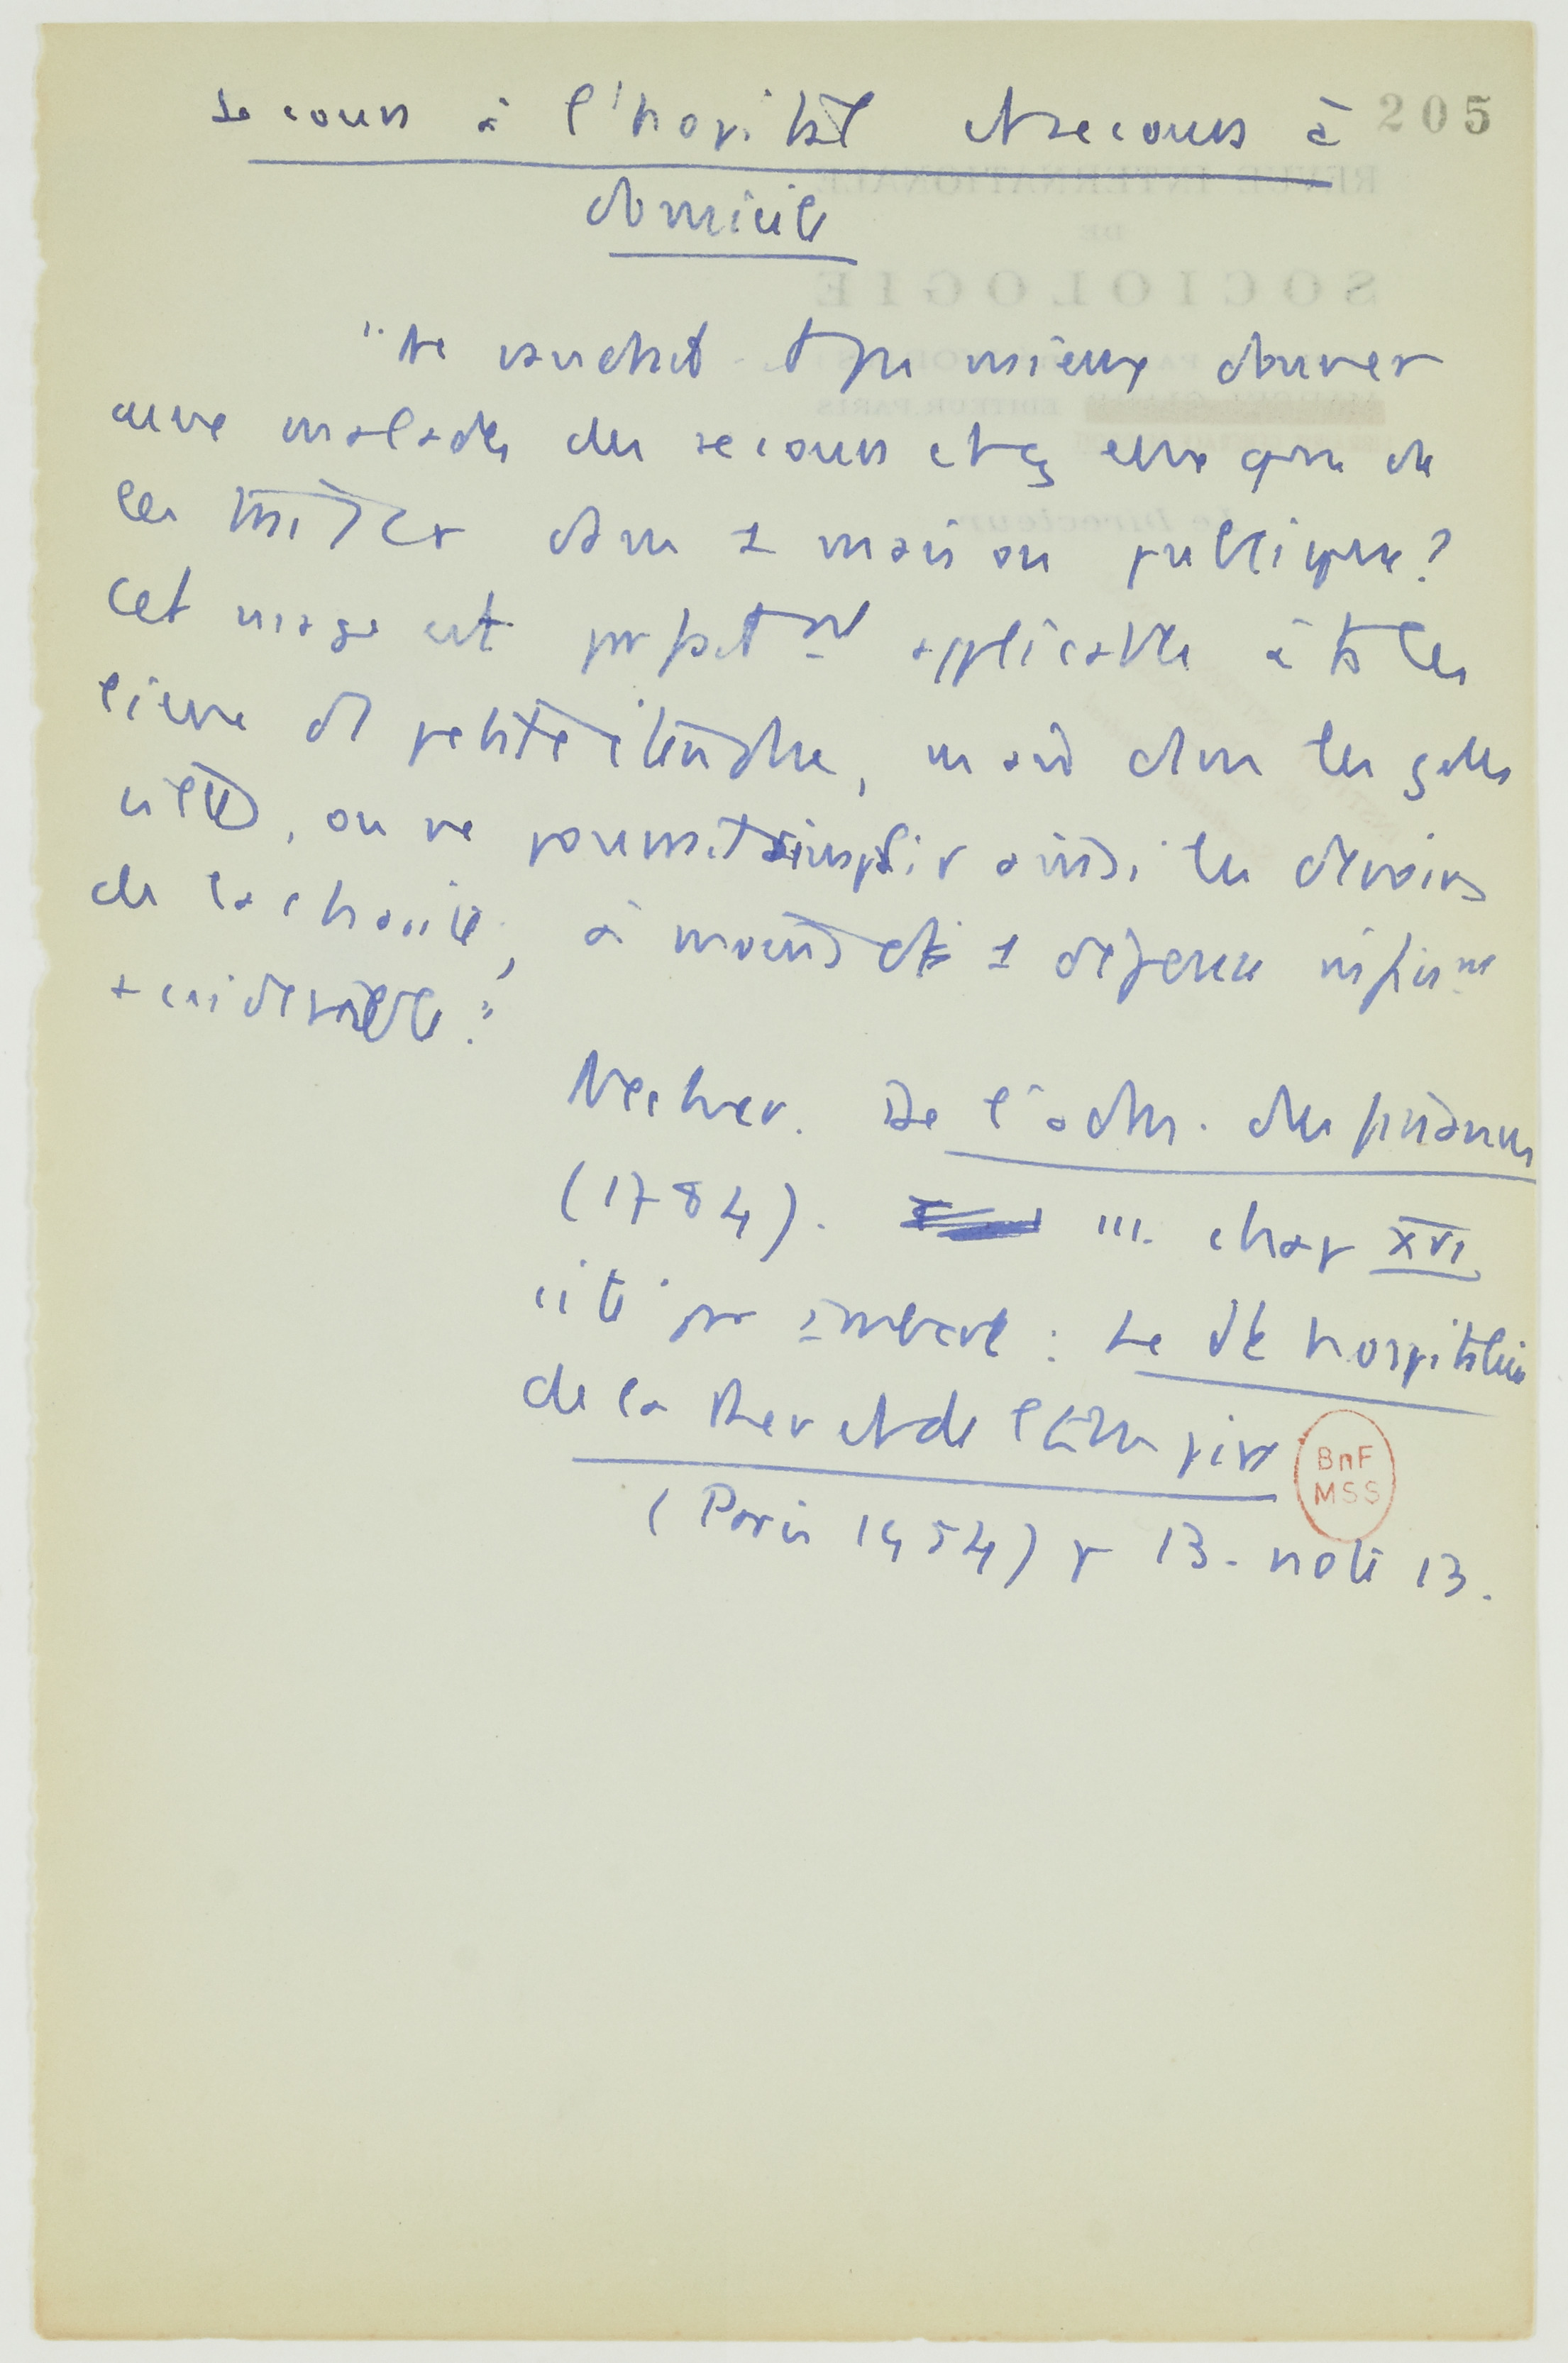 Secours à l'hopital et secours à
205
domicile
"Ne vaudrait-il pas mieux donner
aux malades des secours chez eux que de
les traiter dans 1 maison publique?
Cet usage est parfait nt applicable à ts les
lieux de petite étendue, mais dans les gdes
villes, on ne pourrait remplir ainsi les devoirs
de la charité, à moins de 1 dépense infini nt
+ considérable."
Necker. De l'adm. des finances
(1784). III. chap XVI
cité par Imbert : Le dt hospitalier
de la Rev et de l'Empire
BnF
MSS
(Paris 1954) p 13. note 13.